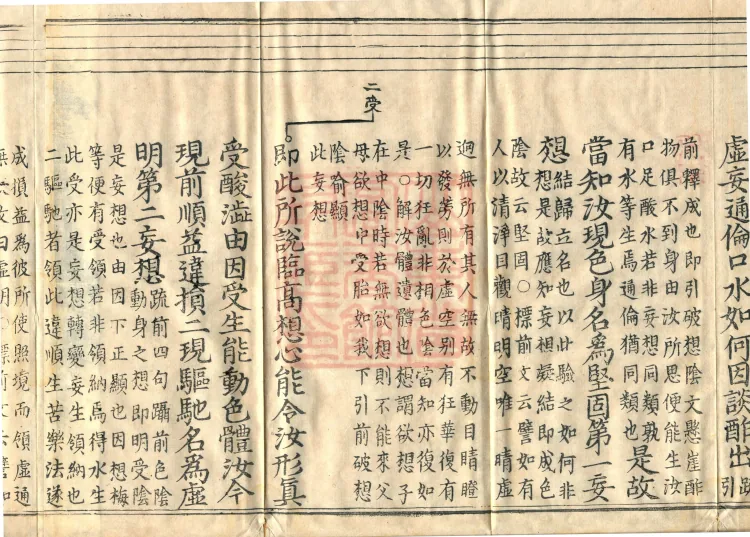 虛妄通倫口水如何因談醋出疏引
前釋成也即引破想陰文懸崖酢
物俱不到身由汝所思便能生汝
口足酸水若非妄想同類孰
有水等生焉通倫猶同類也
是故
當知汝現色身名為堅固第一妄
想結歸立名也以此驗之如何非
想是故應知妄相凝結即成色
陰故云堅固○標前文云譬如有
人以清淨目觀晴明空唯一晴虛
逈無所有其人無故不動目睛瞪
以發勞則於虛空別有狂華復有
一切狂亂非相色陰當知亦復如
是○解汝體遺體也想謂欲想子
在中陰時若無欲想則不能來父
母欲想中受胎如我下引前破想
陰喻顯
此妄想
二受
即此所說臨高想心能令汝形真
受酸澁由因受生能動色體汝今
現前順益違損二現驅馳名為虛
明第二妄想疏前四句躡前色陰
動身之想即明受陰
是妄想也由因下正顯也因想梅
等便有受領若非領納焉得水生
此受亦是妄想轉變妄生領納也
二驅馳者領此違順生苦樂法遂
成損益為彼所使照境而領虛通
故曰虛明